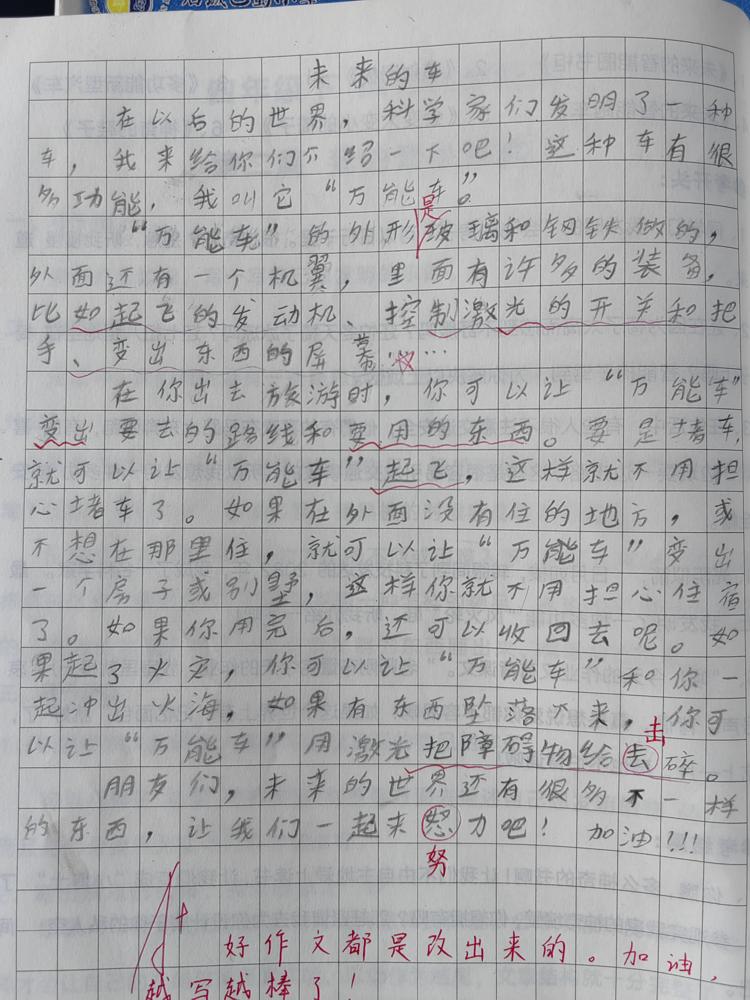 未来的车
在以后的世界，科学家们发明了一种
车，我来给你们介绍一下吧！这种车有很
多功能，我叫它“万能车”。
是
“万能车”的外形玻璃和钢铁做的，
外面还有一个机翼，里面有许多的装备，
比如起飞的发动机、控制激光的开关和把
手、变出东西的屏幕……
在你出去旅游时，你可以让“万能车”
变出要去的路线和要用的东西。要是堵车，
就可以让“万能车”起飞，这样就不用担
心堵车了。如果在外面没有住的地方，或
不想在那里住，就可以让“万能车”变出
一个房子或别墅，这样你就不用担心住宿
了。如果你用完后，还可以收回去呢。如
果起了火灾，你可以让“万能车”和你一
起冲出火海，如果有东西坠落下来，你可
击
以让“万能车”用激光把障碍物给去碎。
朋友们，未来的世界还有很多不一样
的东西，让我们一起来怒力吧！加油！！！
努
好作文都是改出来的。加油，
越写越棒了！